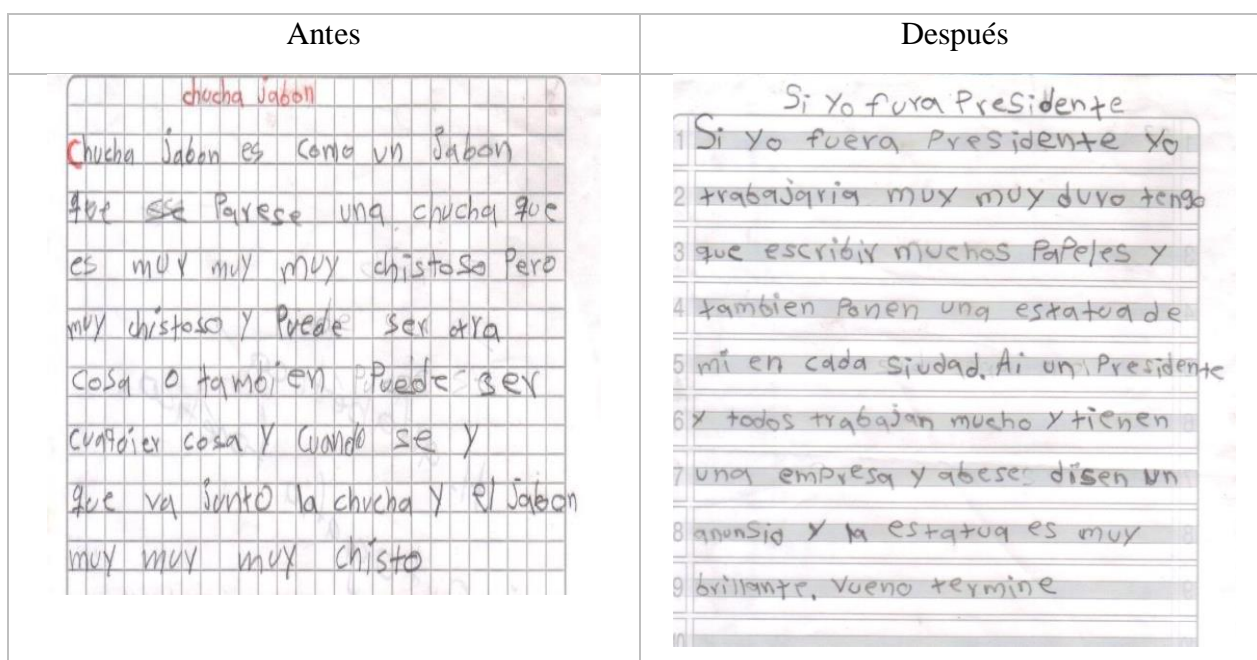 Antes
Después
chucha jabon
Chucha jabon es como un jabon
que se parese una chucha que
es muy muy muy chistoso Pero
muy chistoso y Puede ser otra
cosa o tambien Puede ser
cualqier cosa y Cuando se y
que va junto la chucha y el jabon
muy muy muy chisto
Si Yo fura PreSidente
1 Si Yo fuera PreSidente Yo
2 trabajaria muy muy duro tengo
3 que escribir muchos PaPeles Y
4 tambien Ponen una estatua de
5 mi en cada Siudad. Ai un Presidente
6 Y todos trabajan mucho Y tienen
7 una emPresa Y abeses disen un
8 anunsio Y la estatua es muy
9 brillante. Vueno termine
10